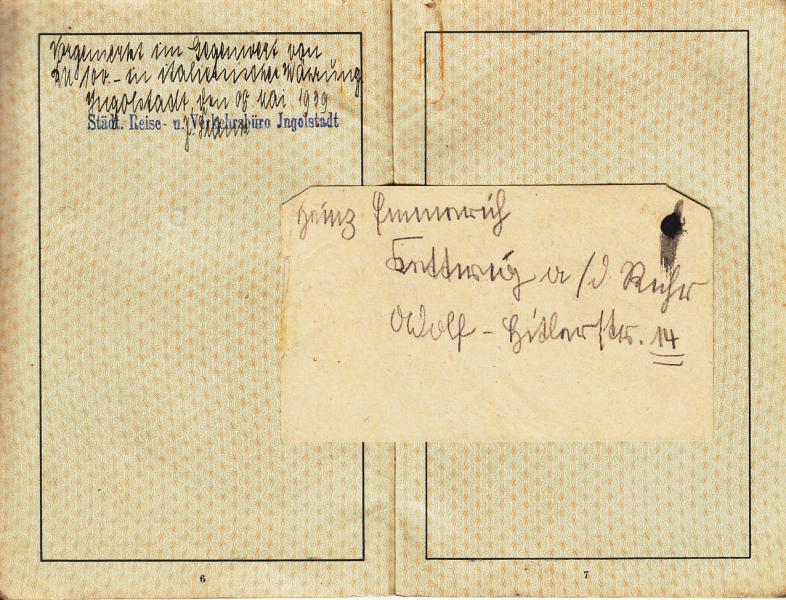 Vorgemerkt im Gegenwert von
RM 100.- in italienischer Währung
Ingolstadt, den 08. Mai 1939
Städt. Reise- u. Verkehrsbüro Ingolstadt
Heinz Emmerich
Kettwig a/d Ruhr
Adolf-Hitlerstr. 14
6
7